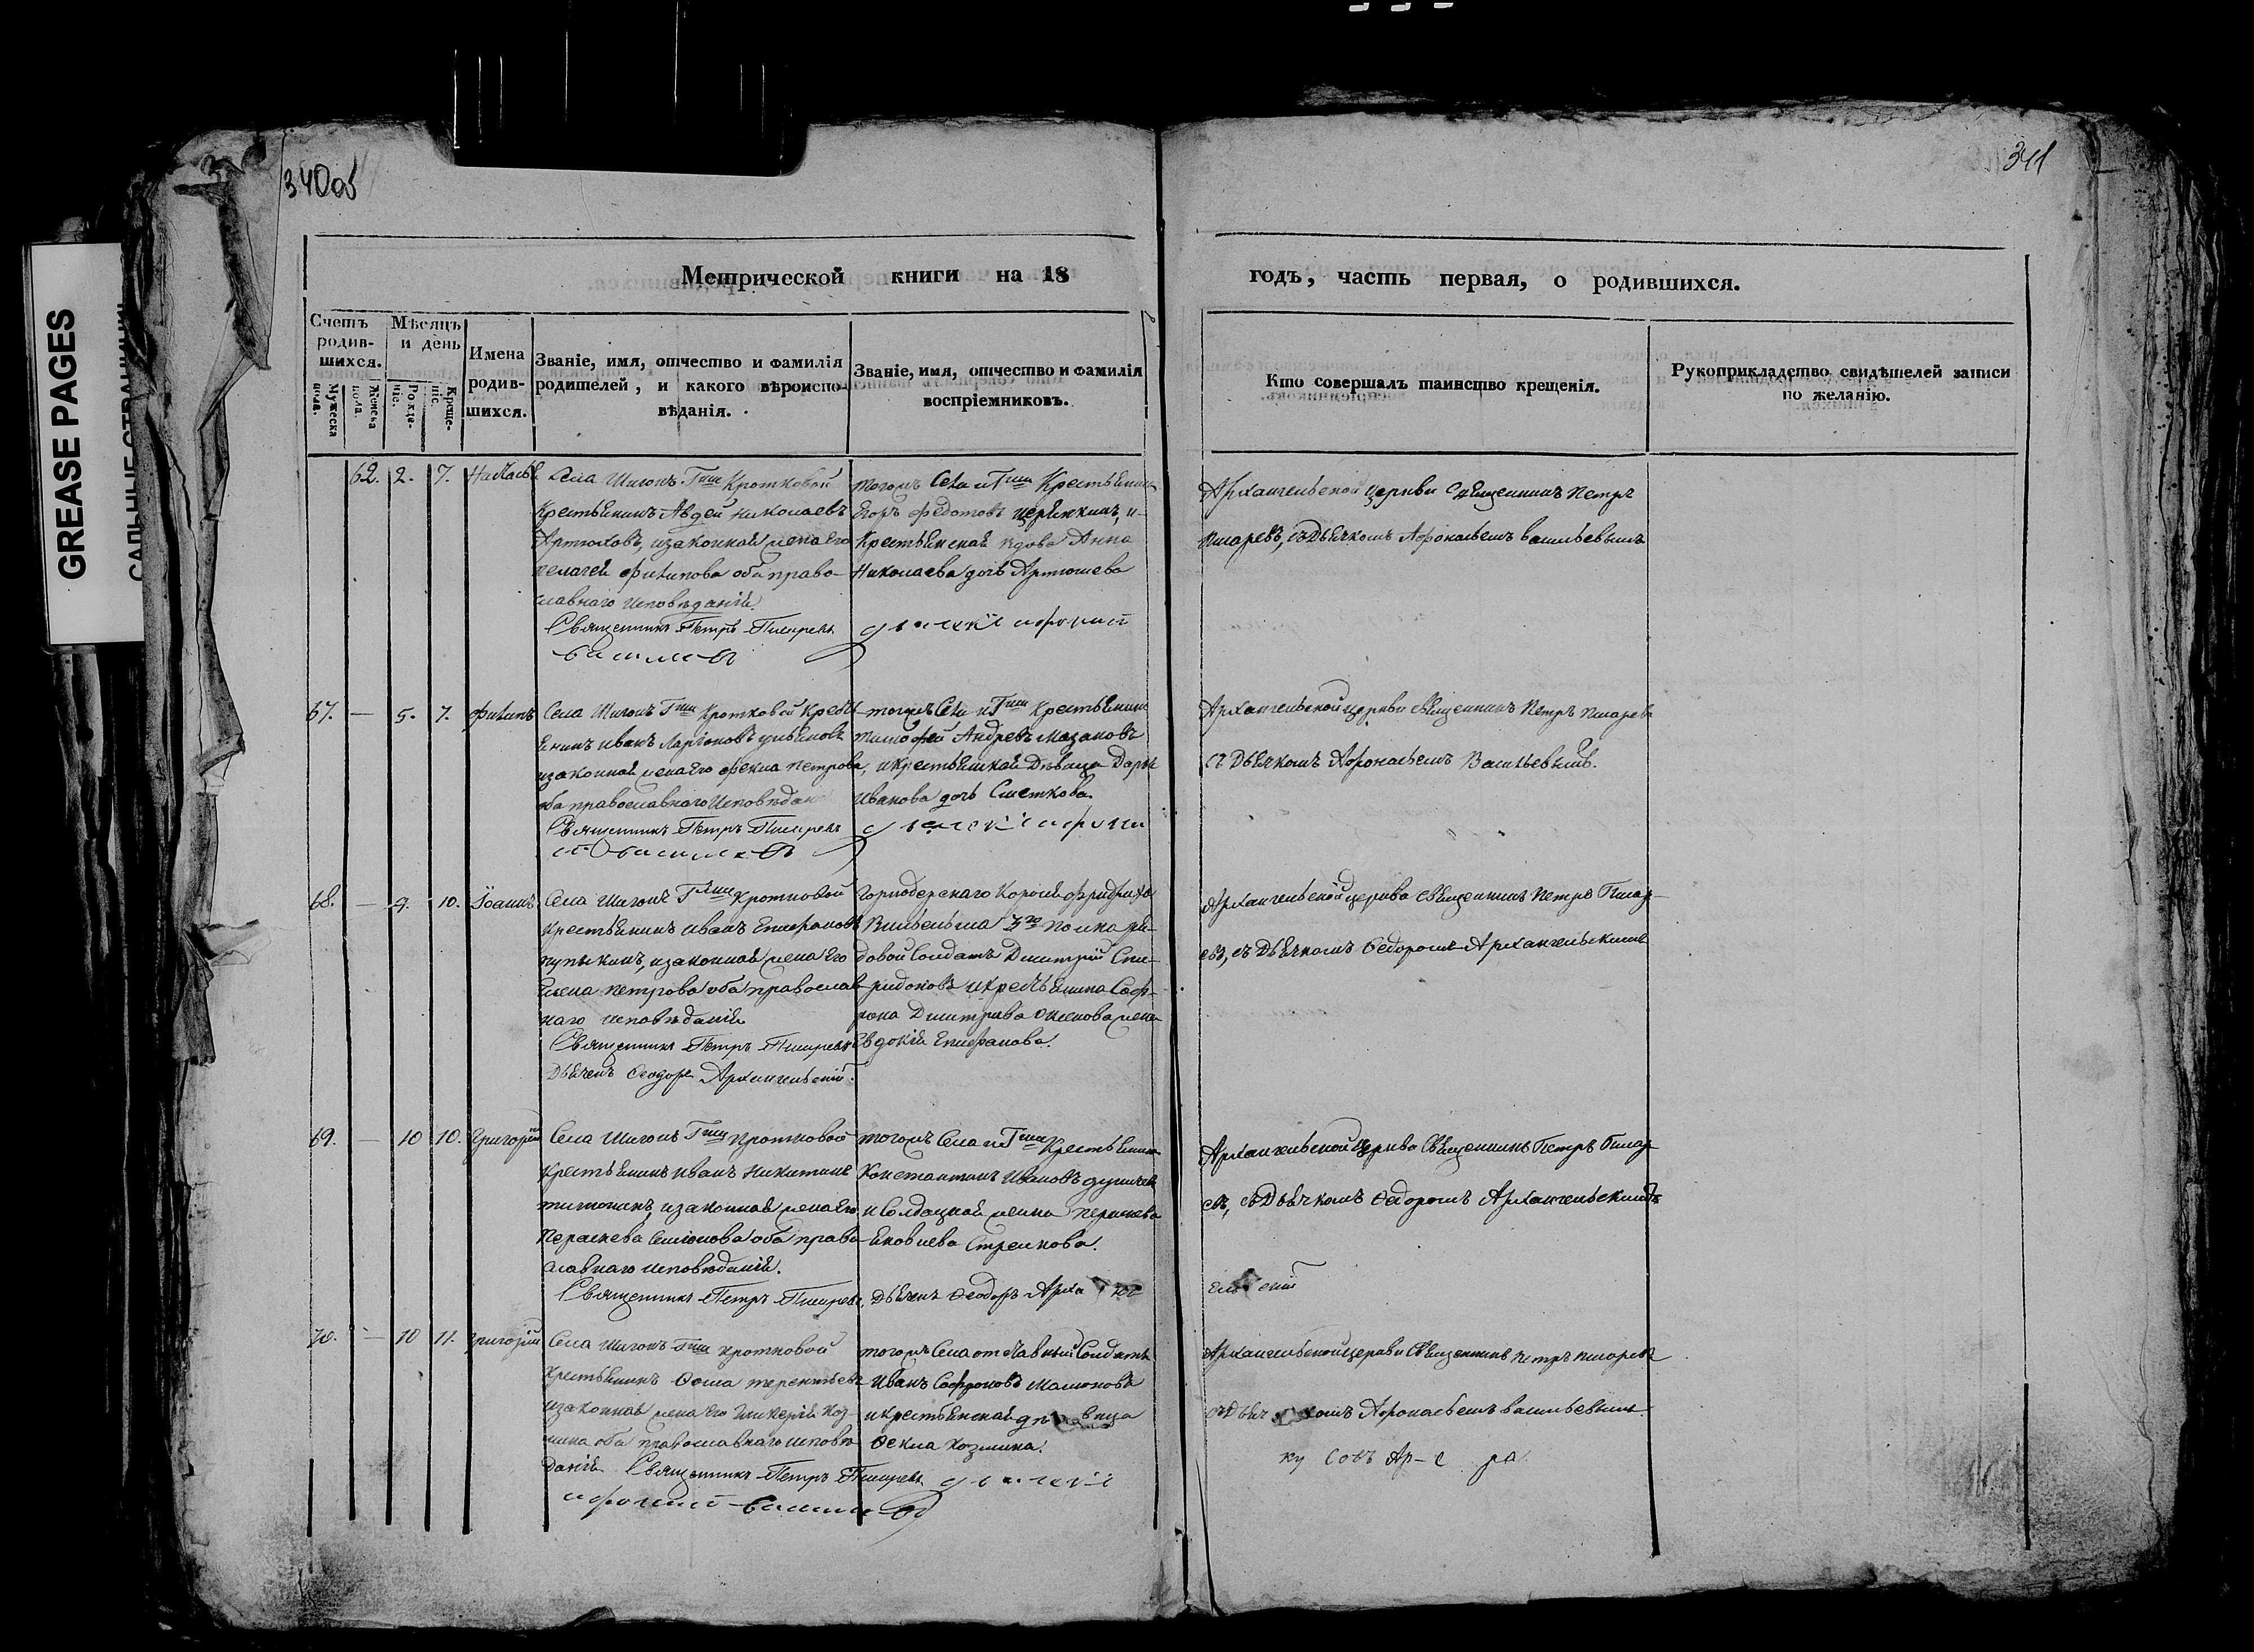 GREASE PAGES
САЛЬНЫЕ СТРАНИЦЫ
340об
341
Метрической книги на 18
годъ, часть первая, о родившихся.
Счетъ родив-шихся.
Мужеска пола.
Женска пола.
Мѣсяцъ и день
Рожде-нія.
Креще-нія.
Имена родив-шихся.
Званіе, имя, отчество и фамилія
родителей, и какого вѣроиспо-
вѣданія.
Званіе, имя, отчество и фамилія
воспріемниковъ.
Кто совершалъ таинство крещенія.
Рукоприкладство свидѣтелей записи
по желанію.
62. 2. 7.
Села Шигонъ Гжи Кротковой
Крестьянинъ Авдей Николаевъ
Артюховъ, изаконная жена его
пелагея филипова оба право-
славнаго исповѣданія
Священникъ Петръ Писаревъ
тогожъ Села и Гжи Крестьянинъ
Егоръ Федотовъ и
Крестьянская вдова Анна
Николаева дочь Артюшева
Архангельской церкви Священникъ Петръ
Писаревъ, съ Дьячкомъ Афонасьемъ васильевымъ
67. — 5. 7. филипъ
Села Шигонъ Гжи Кротковой Кресть
янинъ иванъ Ларіоновъ
изаконная жена его фекла петрова
оба православнаго исповѣдан
Священникъ Петръ Писаревъ
тогожъ Села и Гжи Крестьянинъ
тимофей Андревъ Мазановъ
, икрестьянская Дѣвица Дарья
Иванова дочь Сметкова
Архангельской церкви священникъ Петръ Писаревъ
съ Дьячкомъ Афонасьемъ Васильевымъ.
68. — 9. 10. Іоаннъ
Села Шигонъ Гжи Кротковой
крестьянинъ иванъ Епифановъ
пупыкинъ, изаконная жена его
Елена петрова оба православ
наго исповѣданія
Священникъ Петръ Писаревъ
Дьячекъ Феодоръ Архангельскій.
Короля фридриха
Вильгельма 3го полка ря-
довой Солдатъ Дмитрій Спи-
ридоновъ икрестьянина Соф-
рона Дмитріва жена
Евдокія Епифанова.
Архангельской церкви священникъ Петръ Писар-
евъ, съ Дьячкомъ Федоромъ Архангельскимъ
69. — 10 10. Григорій
Села Шигонъ Гжи Кротковой
крестьянинъ иванъ Никитинъ
тимонинъ, изаконная жена его
Параскева Семіонова оба право
славнаго исповѣданія.
Священникъ Петръ Писаревъ, Дьячекъ Феодоръ Арха
тогожъ Села и Гжи Крестьянинъ
Константинъ Ивановъ
и солдацкая жена Параскева
Яковлева Стрелкова.
Архангельской церкви Священникъ Петръ Писар
евъ, съ Дьячкомъ Федоромъ Архангельскимъ
70. — 10 11. григорій
Села Шигонъ Гжи кротковой
Крестьянинъ Фома терентьевъ
изаконная жена его Гликерія Коз-
мина оба православнаго исповѣ
данія Священникъ Петръ Писаревъ
тогожъ Села отставный Солдатъ
Иванъ Софроновъ Малюновъ
икрестьянская дѣвица
Фекла Козмина.
Архангельской церкви Священникъ петръ писаревъ
съ Дьячкомъ Афонасьемъ васильевымъ.